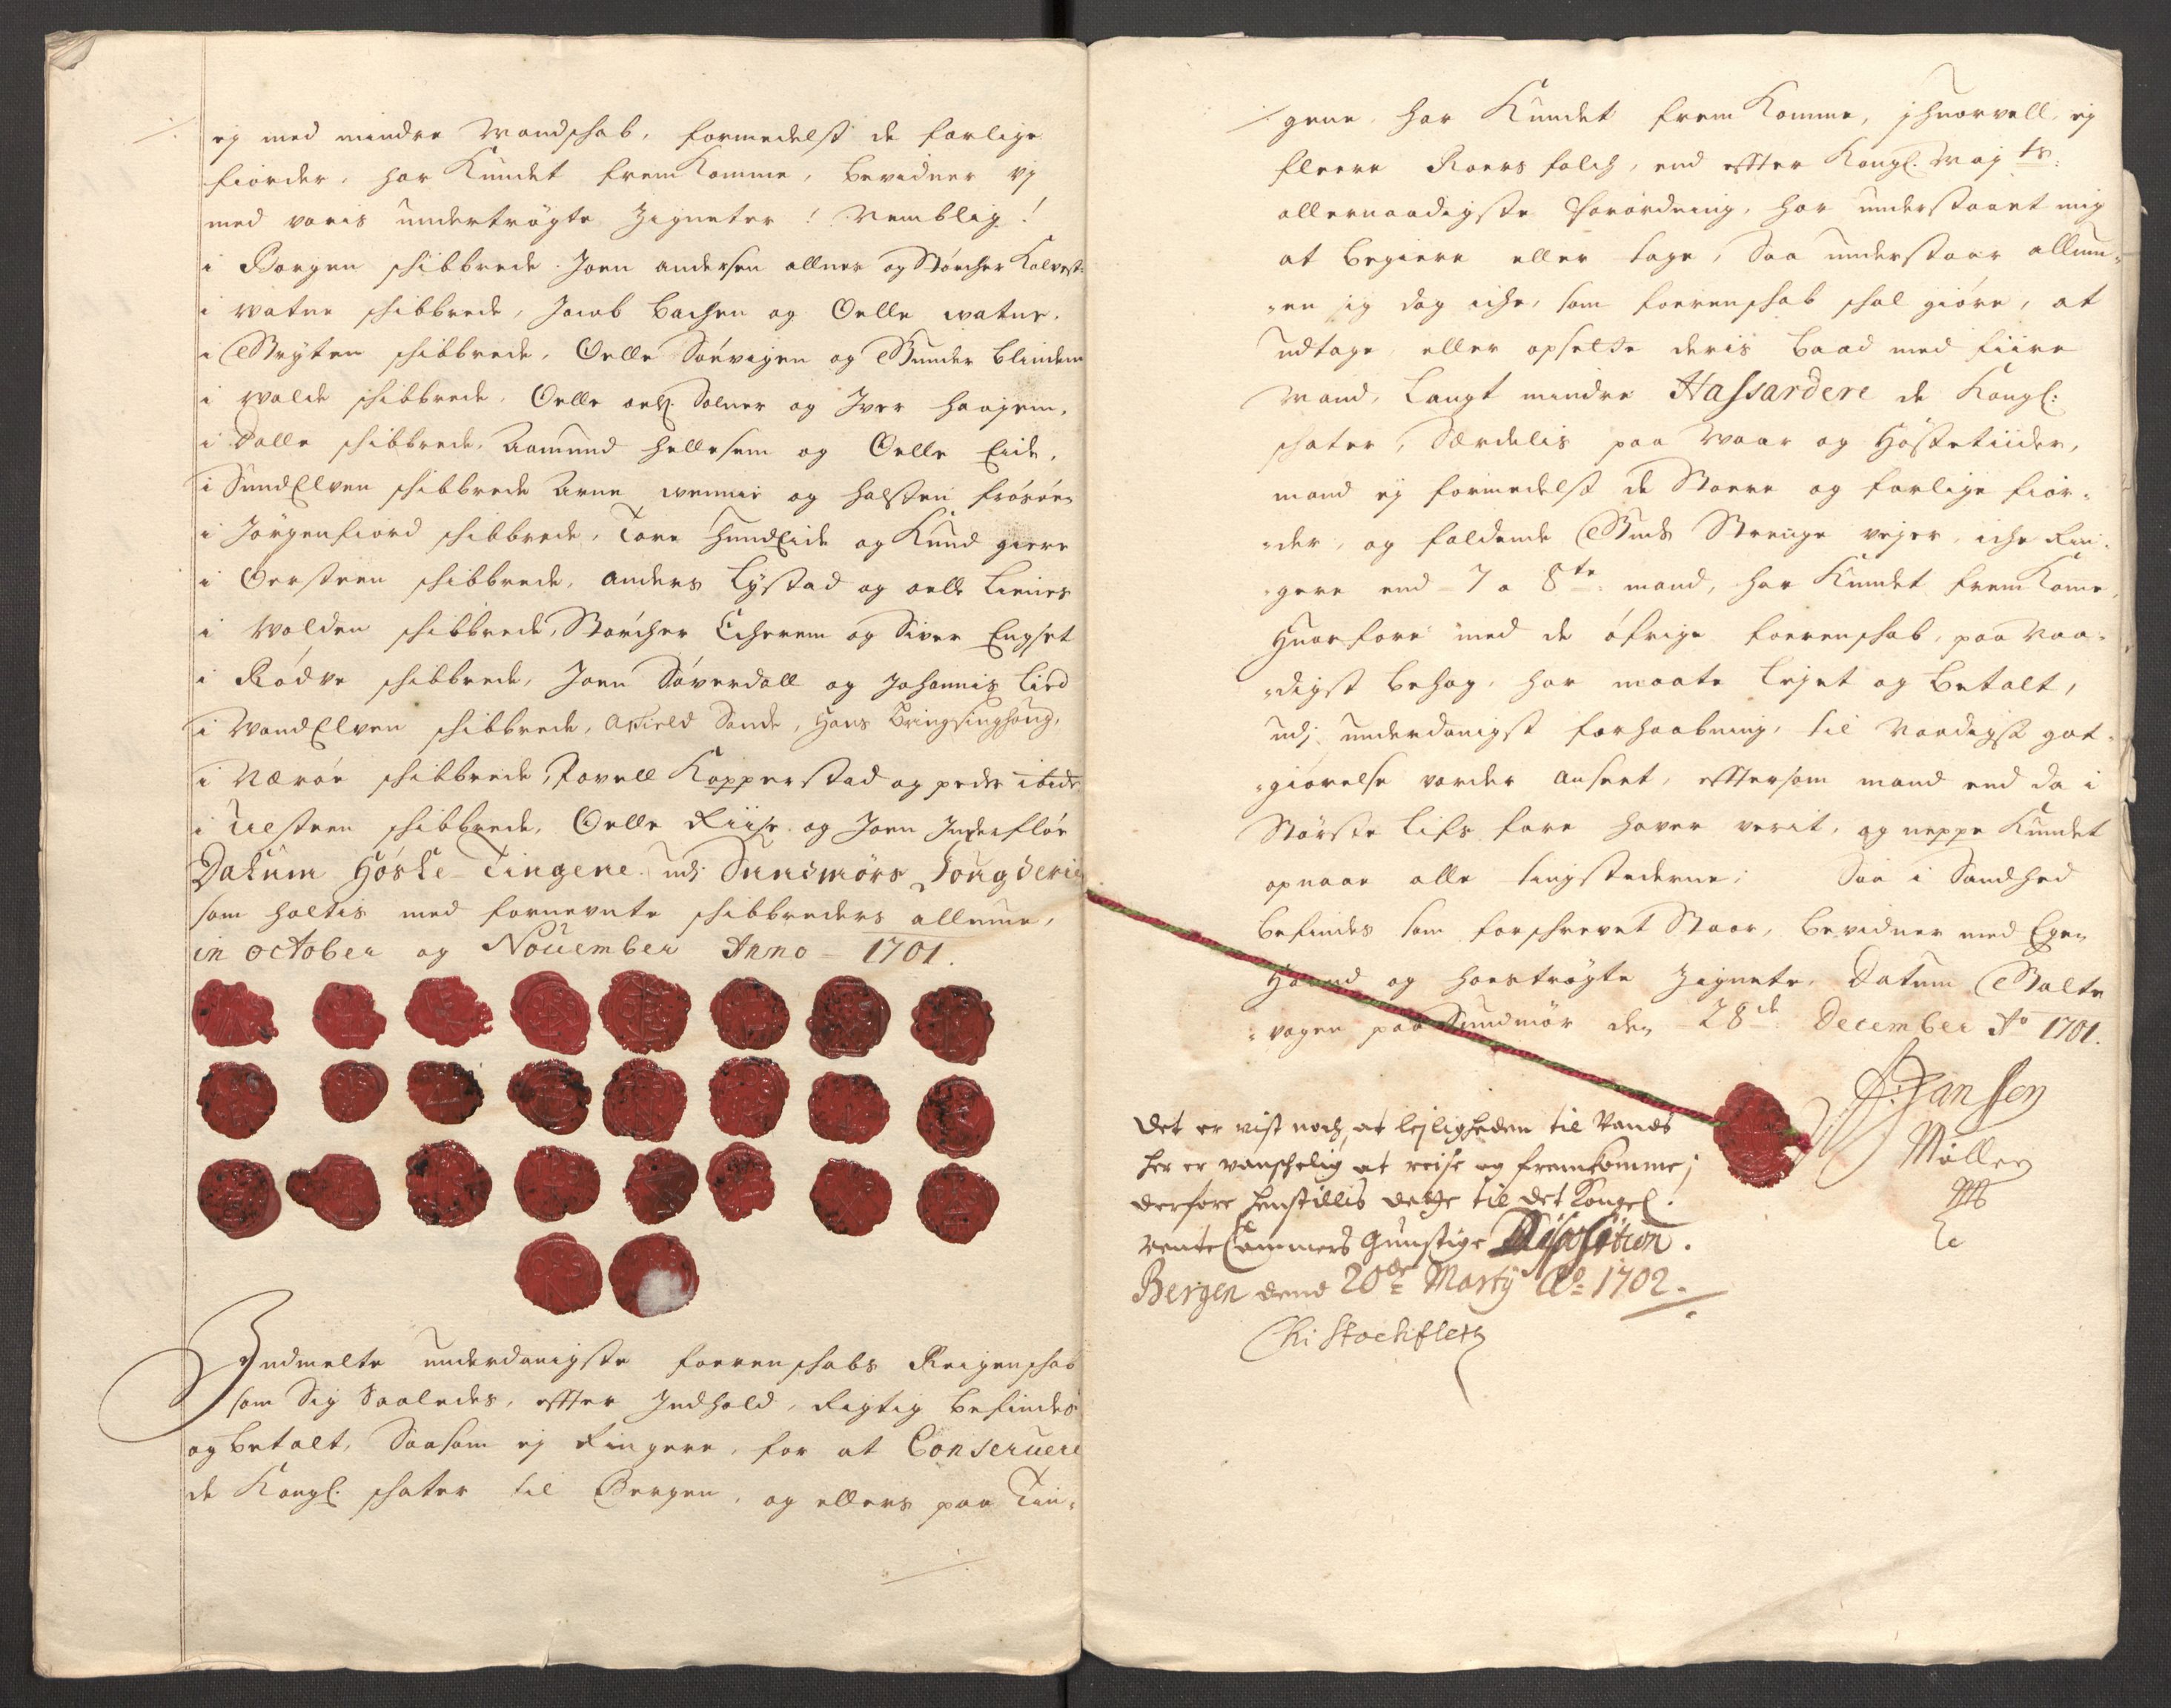 ej med mindre Mandschab, formedelst de farlige
fiorder, har Kundet frem Komme, bevidner vj
med voris undertrøgte Zigneter! Nemblig!
i Borgen schibbrede. Joen andersen allnes og Størcher Kalvest:
i Vatne schibbrede, Jacob bachen og Oelle vatne.
i Gryten schibbrede, Oelle Søevigen og Gunder blindem
i Valde schibbrede, Oelle oels. Solnør og Iver haagem,
i Dalle schibbrede, Aamund hellesem og Oelle Eide,
i SundElven schibbrede Arne og halsten frøsøen
i Jørgenfiord schibbrede, Tore hundEide og Knud giere
i Oersteen schibbrede, Anders Lystad og oelle Lienes
i Volden schibbrede, Størcher Echerem og Siver Engset
i Rødve schibbrede, Joen Søverdall og Johannis Lied
i VandElven schibbrede, Sande, Hans Bringsinghoug,
i Nærøe schibbrede, Povell Kopperstad og peder ibid:
i Ulsteen schibbrede, Oelle Riise og Joen Inderfløe
Datum Høste Tingene udj Sundmørs fougderie
som holtis med fornevnte schibbreders allmue,
in october og November Anno – 1701.
Indmelte underdanigste foerenschabs Reigenschab
som Sig Saaledes, effter Indhold, Rigtig befindes
og betalt, Saasom ej Ringere, for at Conseruere
de Kongl. schater til Bergen, og ellers paa Tin-
gene har Kundet frem Komme, ihuorvell ej
fleere Roers folch, end effter Kongl. May ts.
allernaadigste forordning, har understaaet mig
at begiere eller tage, Saa understaar allmu-
-en sig dog iche, som foerenschab schal giøre, at
udtage eller opsette deris baad med fiire
Mand, Langt mindre Hassardere de Kongl:
schater, Særdelis paa Vaar og Høstetiider,
mand ej formedelst de Store og farlige fior-
-der, og faldende Guds Strenge vejer, iche Rin-
-gere end 7 a 8te mand, har Kundet frem Kome,
Huorfore med de øfrige foerenschab, paa Naa-
-digst behag, har maate Lejet og betalt,
udj underdanigst forhaabning, til Naadigst got-
-giørelse vorder anseet, efftersom mand end da i
Største lifs fare haver verit, og neppe Kundet
opnaae alle tingstederne; Saa i Sandhed
befindes som forschrevet Staar, bevidner med Egen
Haand og hoestrøgte Zignete, Datum Volte
-vogen paa Sundmør den 28de December Ao 1701.
Jansen
Møller
Det er vist noch, at lejligheden til Vands
her er vanschelig at reise og fremkomme;
derfore henstillis dette til det Kongel.
RenteCammers gunstige Disposition.
Bergen dend 20de Martij Ao 1702.
Chr Stockfleth